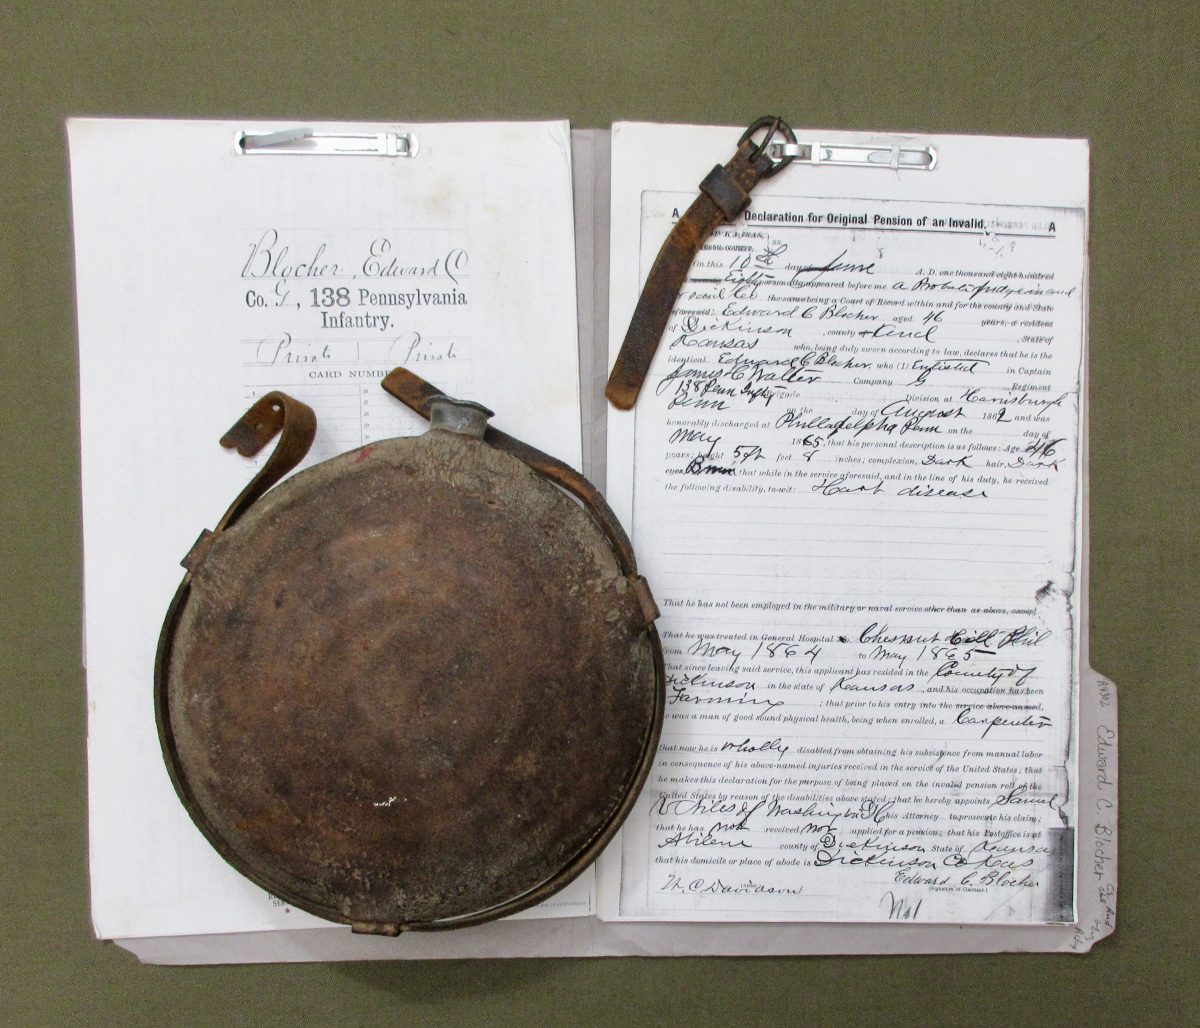 Blocher, Edward C
Co. G, 138 Pennsylvania
Infantry.
Private Private
CARD NUMBE
A Declaration for Original Pension of an Invalid. A
OF KANSAS,
COUNTY,
On this 10th day of June A. D. one thousand eight hundred
Eighty personally appeared before me a Probate Judge in and
for said Co the same being a Court of Record within and for the county and State
aforesaid, Edward C Blocher aged 46 years, a resident
of Dickinson county and State of
Kansas who, being duly sworn according to law, declares that he is the
identical Edward C Blocher, who (1) Enlisted in Captain
James C Walter Company G Regiment
138 Penn Infty Brigade Division at Harrisburgh
Penn on the day of August 1862 and was
honorably discharged at Philladelpha Penn on the day of
May 1865, that his personal description is as follows: Age 46
years; height 5ft feet 8 inches; complexion, Dark hair, Dark
eyes, that while in the service aforesaid, and in the line of his duty, he received
the following disability, to-wit: Hart disease
That he has not been employed in the military or naval service other than as above, except
That he was treated in General Hospital Chesnut Hill Phil
from May 1864 to May 1865
That since leaving said service, this applicant has resided in the County of
Dickinson in the state of Kansas, and his occupation has been
Farming ; that prior to his entry into the service above-named,
he was a man of good sound physical health, being when enrolled, a Carpenter
that now he is wholly disabled from obtaining his subsistence from manual labor
in consequence of his above-named injuries received in the service of the United States; that
he makes this declaration for the purpose of being placed on the invalid pension roll of the
United States by reason of the disabilities above stated; that he hereby appoints Samuel
V Niles of Washington his Attorney to prosecute his claim;
that he has not received nor applied for a pension; that his Postoffice is at
Abilene county of Dickinson State of Kansas
that his domicile or place of abode is Dickinson Co Kas
Edward C. Blocher
(Signature of Claimant.)
M. C. Davidson
Edward C. Blocher